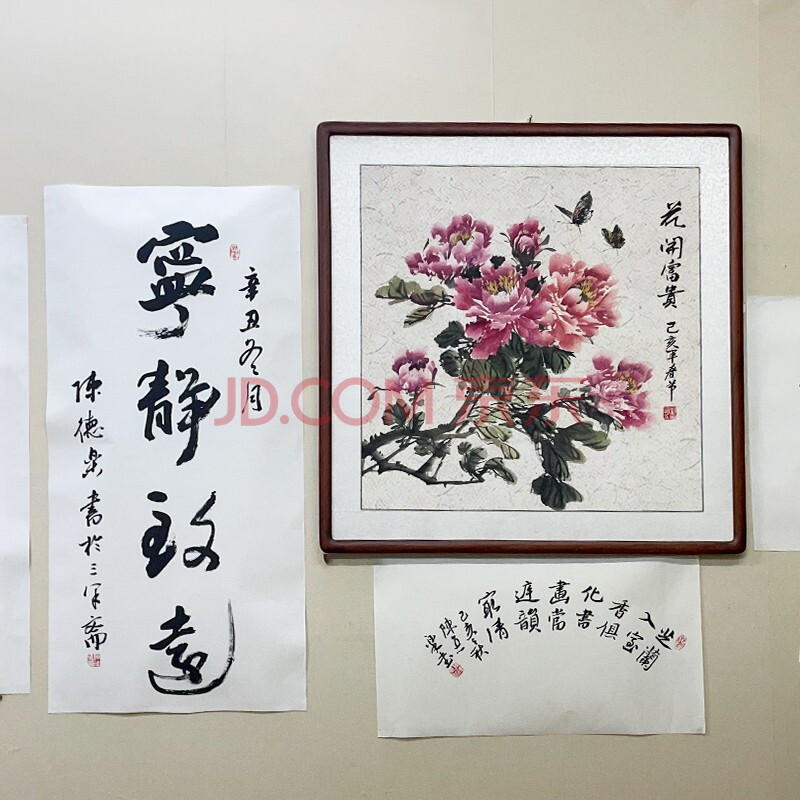 寧靜致遠
辛丑冬月
陳德
書於三
花開富貴
己亥年春节
芝蘭
入室
香俱
化書
畫當
庭韻
家清
己亥秋
JD.COM 京东